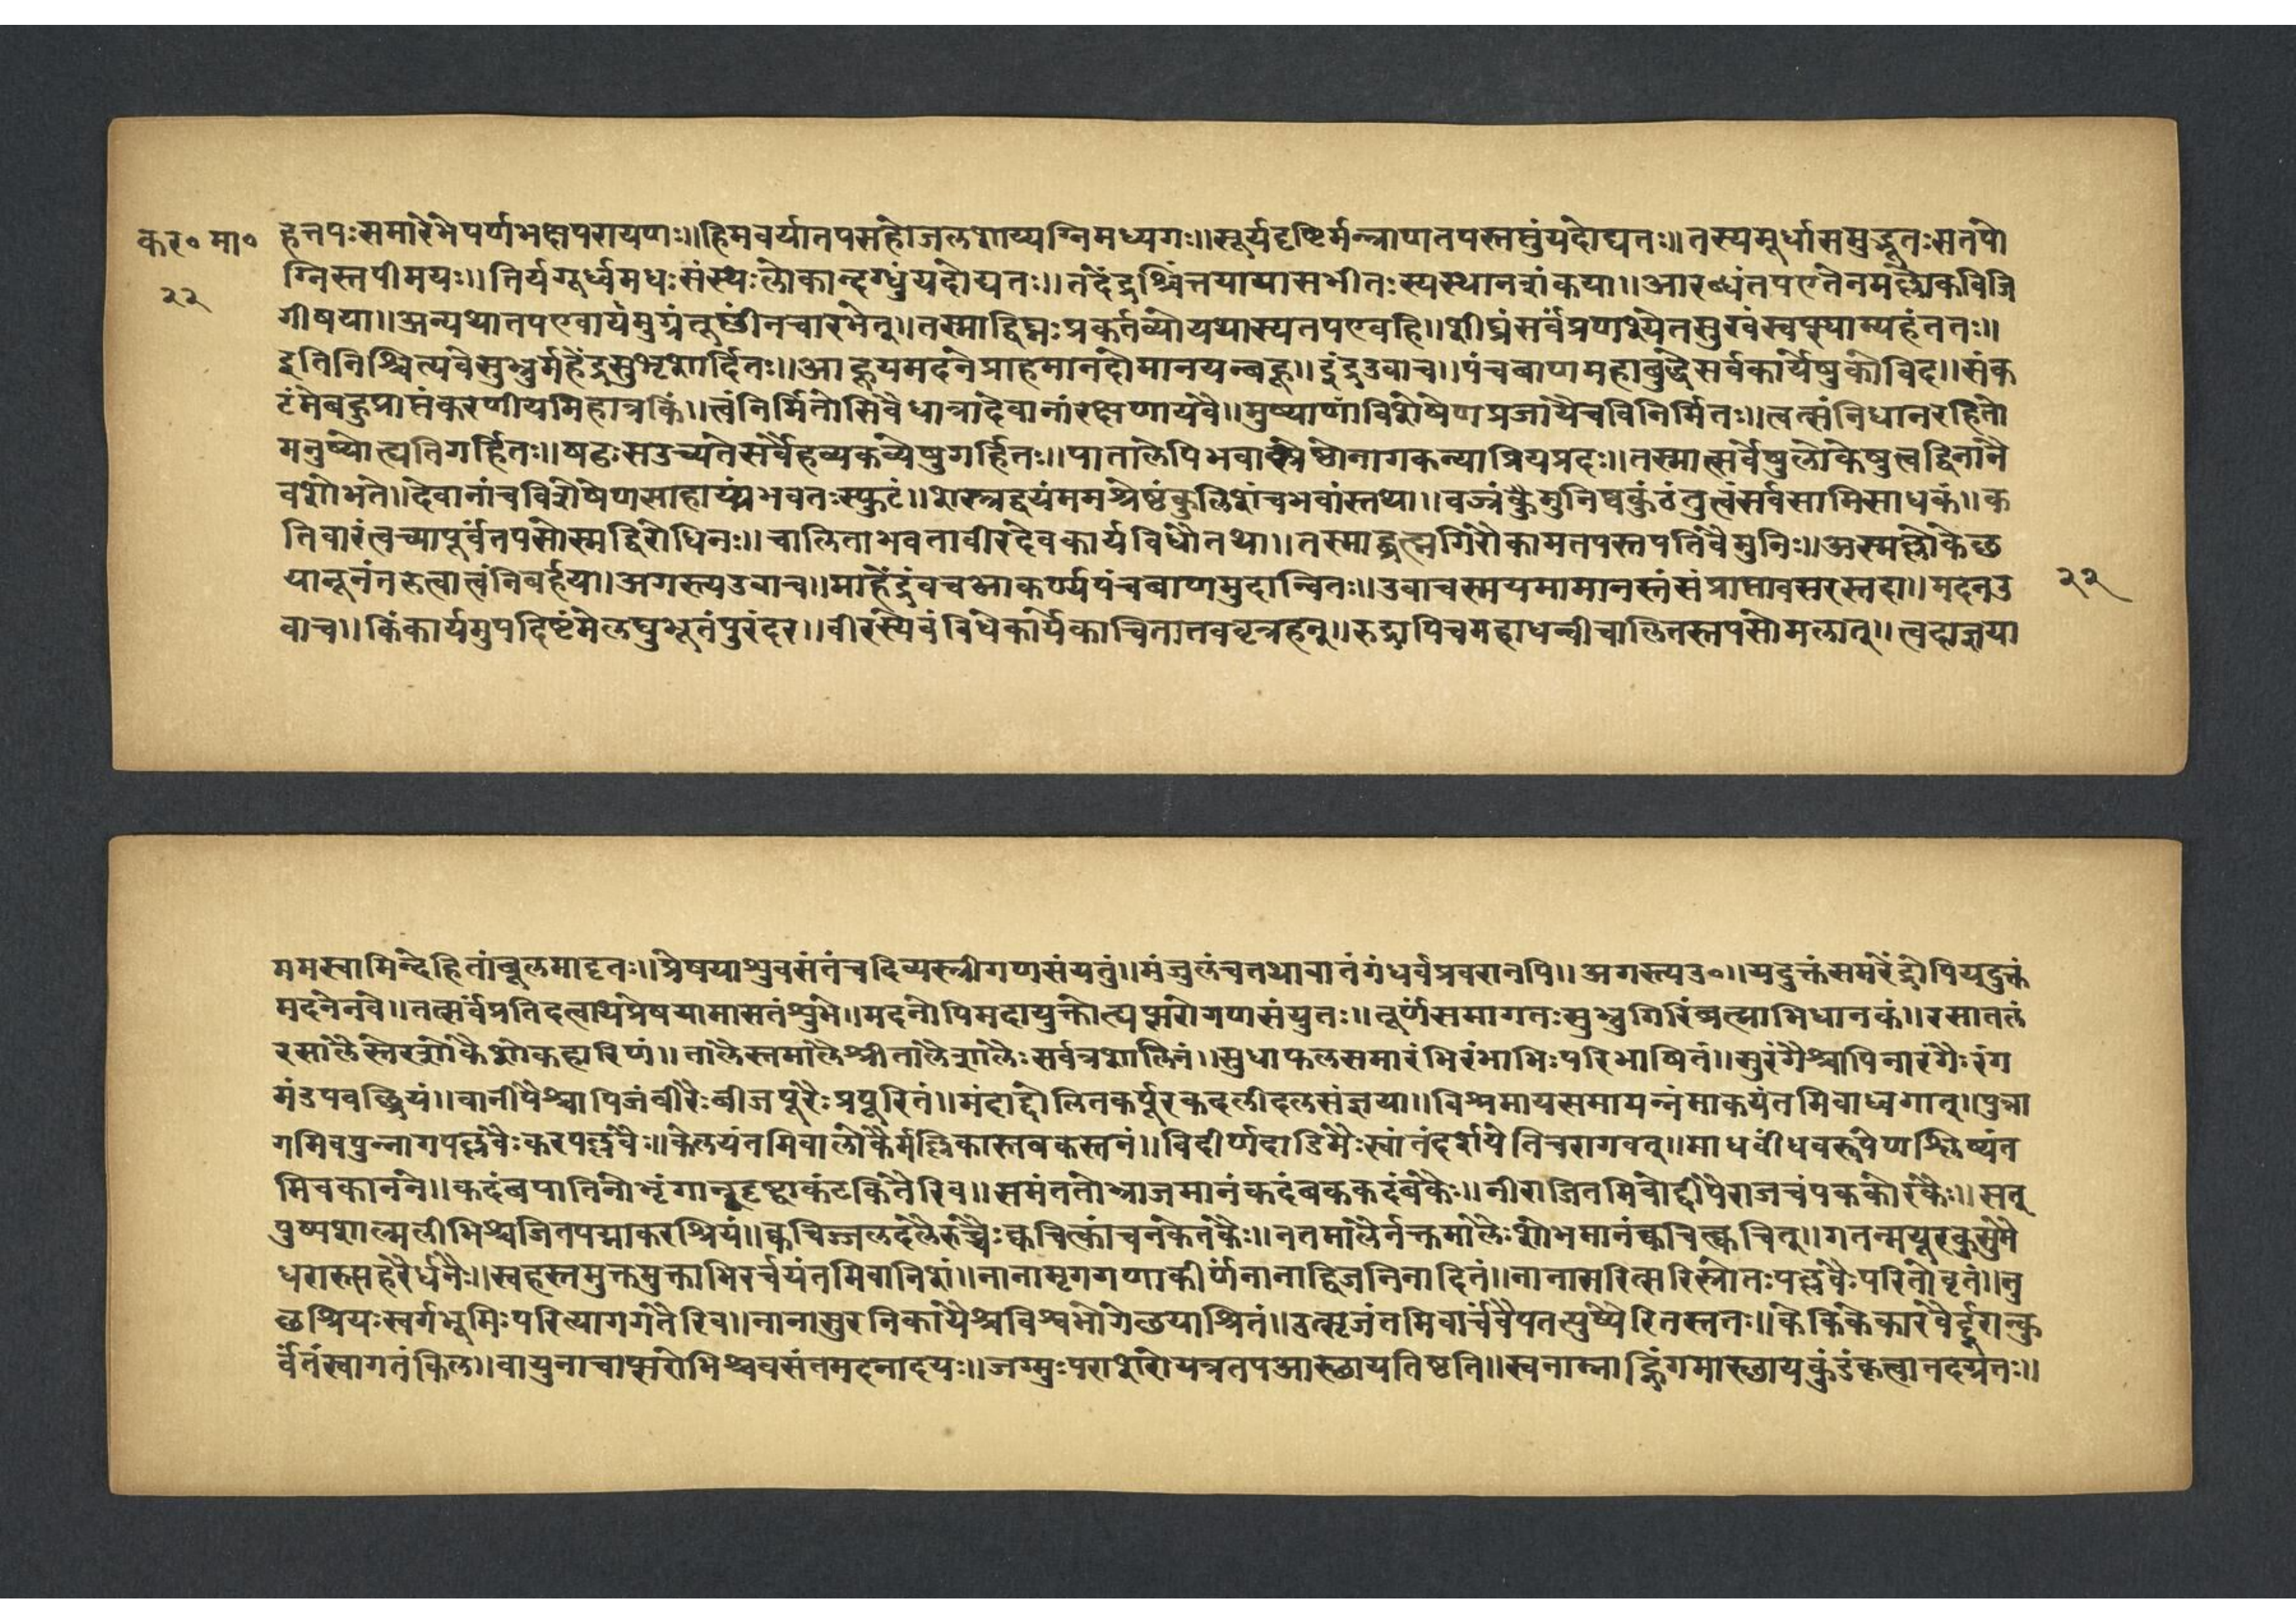 कर० मा०
२२
हेत्तपःसमारेभेपर्णभक्षपरायणः॥हिमवर्यातपसहोजलशाय्यग्निमध्यगः॥सूर्यदृष्टिर्मन्त्राणतपस्तप्तुंयदोद्यतः॥तस्यमूर्धासमुद्भूतःसतपो
ग्निस्तपोमयः॥तिर्यगूर्ध्वमधःसंस्थःलोकान्दग्धुंयदोद्यतः॥तदेंद्रश्चिंत्तयायासभीतःस्यस्थानशंकया॥आरब्धंतपएतेनमल्लोकविजि
गीषया॥अन्यथातपएवायंमुग्रंतूष्णींनचारभेत्॥तस्माद्विघ्नःप्रकर्तव्योयथास्यतपएवहि॥शीघ्रंसर्वंप्रणश्येतसुखंस्वप्स्याम्यहंततः॥
इतिनिश्चित्यवेसुभ्रुर्महेंद्रसुभृशार्दितः॥आहूयमदनंप्राहमानदोमानयन्बहू॥इंद्रउवाच॥पंचबाणमहाबुद्धेसर्वकार्येषुकोविद॥संक
टंमेबहुप्राप्तंकरणीयमिहात्रकिं॥त्वंनिर्मितोसिवैधात्रादेवानांरक्षणायवै॥मुष्याणांविशेषेणप्रजायैचविनिर्मितः॥त्वत्संनिधानरहितो
मनुष्योत्यतिगर्हितः॥षठःसउच्यतेसर्वैहव्यकव्येषुगर्हितः॥पातालेपिभवान्प्रेष्ठोनागकन्याप्रियप्रदः॥तस्मात्सर्वेषुलोकेषुत्वद्विनानै
वशोभते॥देवानांचविशेषेणसाहाय्यंभवतःस्फुटं॥शस्त्रद्वयंममश्रेष्ठंकुलिशंचभवांस्तथा॥वज्रंक्रैमुनिष्वकुंठंतुत्वंसर्वसामिसाधकं॥क
तिवारंत्वच्यापूर्वंतपसोस्मद्विरोधिनः॥चालिताभवतावीरदेवकार्यविधौतथा॥तस्माद्वत्सगिरौकामतपस्तपतिवैमुनिः॥अस्मल्लोकेछ
यानूनंनरुत्वात्वंनिबर्हया॥अगस्त्यउवाच॥माहेंद्रंवचआकर्ण्यपंचबाणमुदान्वितः॥उवाचस्मयमामानस्तंसंप्राप्तावसरस्तदा॥मदनउ
२२
वाच॥किंकार्यमुपदिष्टंमेलघुभूतंपुरंदर॥वीरस्यैवंविधेकार्येकाचिंतातववृत्रहन्॥रुद्रापिचमहाधन्वीचालितस्तपसोमलात्॥त्वदाज्ञया
ममस्वामिन्देहितांबूलमादृतः॥प्रेषयाशुवसंतंचदिव्यस्त्रीगणसंयतुं॥मंजुलंचतथावातंगंधर्वप्रवरानपि॥अगस्त्यउ०॥यदुक्तंसमरेंद्रोपियदुक्तं
मदनेनवै॥तत्सर्वंप्रतिदत्वाथप्रेषयामासतंशुभे॥मदनोपिमदायुक्तोत्यप्सरोगणसंयुतः॥तूर्णंसमागतःसुभ्रुगिरिंवत्साभिधानकं॥रसातलं
रसालैस्तैरशोकैशोकहारिणं॥तालैस्तमालैश्चीतालैशालैःसर्वत्रशालिनं॥सुधाफलसमारंभिरंभाभिःपरिभाषितं॥सुरंगैश्चापिनारंगैःरंग
मंडपवच्छ्रियं॥वानीपैश्चापिजंबीरैःबीजपूरैःप्रपूरितं॥मंदांदोलितकर्पूरकदलीदलसंज्ञया॥विश्रमायसमायन्नंमाकयंतमिवाध्वगात्॥पुन्ना
गमिवपुन्नागपल्लवैःकरपल्लवैः॥केलयंतमिवालोकैर्मल्लिकास्तबकस्तनं॥विदीर्णदाडिमैःस्वांतंदर्शयेतिचरागवत्॥माधवींधवरूपेणश्लिष्यंत
मिवकानने॥कदंबपातिनोभृंगान्दृष्ट्वाकंटकितैरिव॥समंततोभ्राजमानंकदंबककदंबकैः॥नीराजितमिवोद्दीपैराजचंपककोरकैः॥सत्
पुष्पशाल्मलीभिश्चजितपद्माकरश्रियं॥क्वचिज्जलदलैरुच्चैःक्वचित्कांचनकेतकैः॥नतमालैर्नक्तमालैःशोभमानंक्वचित्क्वचित्॥गतन्मयूरकुसुमै
धरारुसहेरैर्धनैः॥स्वहस्तमुक्तमुक्ताभिरर्चयंतमिवानिशं॥नानामृगगणाकीर्णंनानाद्विजनिनादितं॥नानासरित्सरिस्त्रोतःपल्लवैःपरितोवृतं॥तु
छश्रियःस्वर्गभूमिःपरित्यागगतैरिव॥नानासुरनिकायैश्चविश्वभोगेछयाश्रितं॥उत्सृजंतमिवार्चंवैपतत्पुष्पैरितस्ततः॥केकिकेकारवैर्दूरात्कु
र्वेतंस्वागतंकिल॥वायुनाचाप्सरोभिश्चवसंतमदनादयः॥जग्मुःपराशरोयत्रतपआस्छायतिष्ठति॥स्वनाम्नाल्लिंगमास्छायकुंडंकृत्वातदग्रतः॥